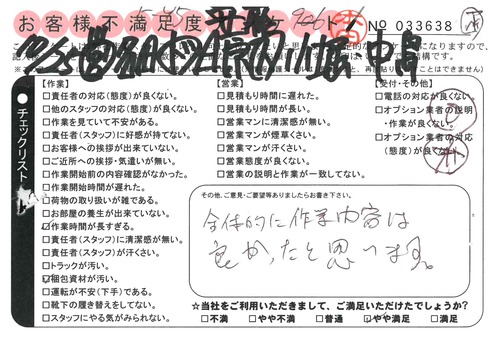 お客様不満足度アンケート
№ 033638
【作業】
□責任者の対応(態度)が良くない。
□他のスタッフの対応(態度)が良くない。
□作業を見ていて不安がある。
□責任者(スタッフ)に好感が持てない。
□お客様への挨拶が出来ていない。
□ご近所への挨拶・気遣いが無い。
□作業開始前の内容確認がなかった。
□作業開始時間が遅れた。
□荷物の取り扱いが雑である。
□お部屋の養生が出来ていない。
☑作業時間が長すぎる。
□責任者(スタッフ)に清潔感が無い。
□責任者(スタッフ)が汗くさい。
□トラックが汚い。
☑梱包資材が汚い。
□運転が不安(下手)である。
□靴下の履き替えをしてない。
□スタッフにやる気がみられない。
【営業】
□見積もり時間に遅れた。
□見積もり時間が長い。
□営業マンに清潔感が無い。
□営業マンが煙草くさい。
□営業マンが汗くさい。
□営業態度が良くない。
□営業の説明と作業が一致してない。
【受付・その他】
□電話の対応が良くない。
□オプション業者の説明・作業が良くない。
□オプション業者の対応(態度)が良くない。
チェックリスト
その他、ご意見・ご要望等ありましたらお書き下さい。
全体的に作業内容は
良かったと思います。
☆当社をご利用いただきまして、ご満足いただけたでしょうか?
□不満 □やや不満 □普通 ☑やや満足 □満足